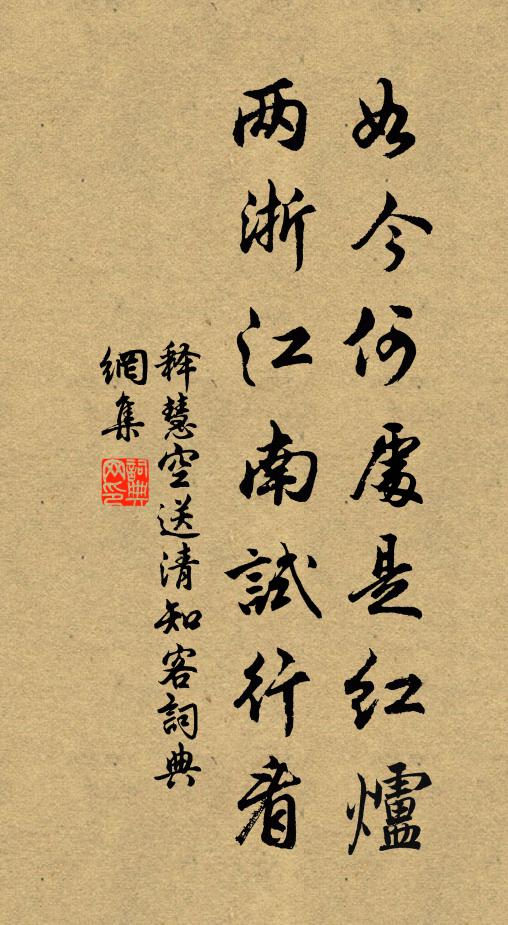 如今何處是紅爐
两浙江南試行看
释慧空送清知客詞典
網集
詞典網印